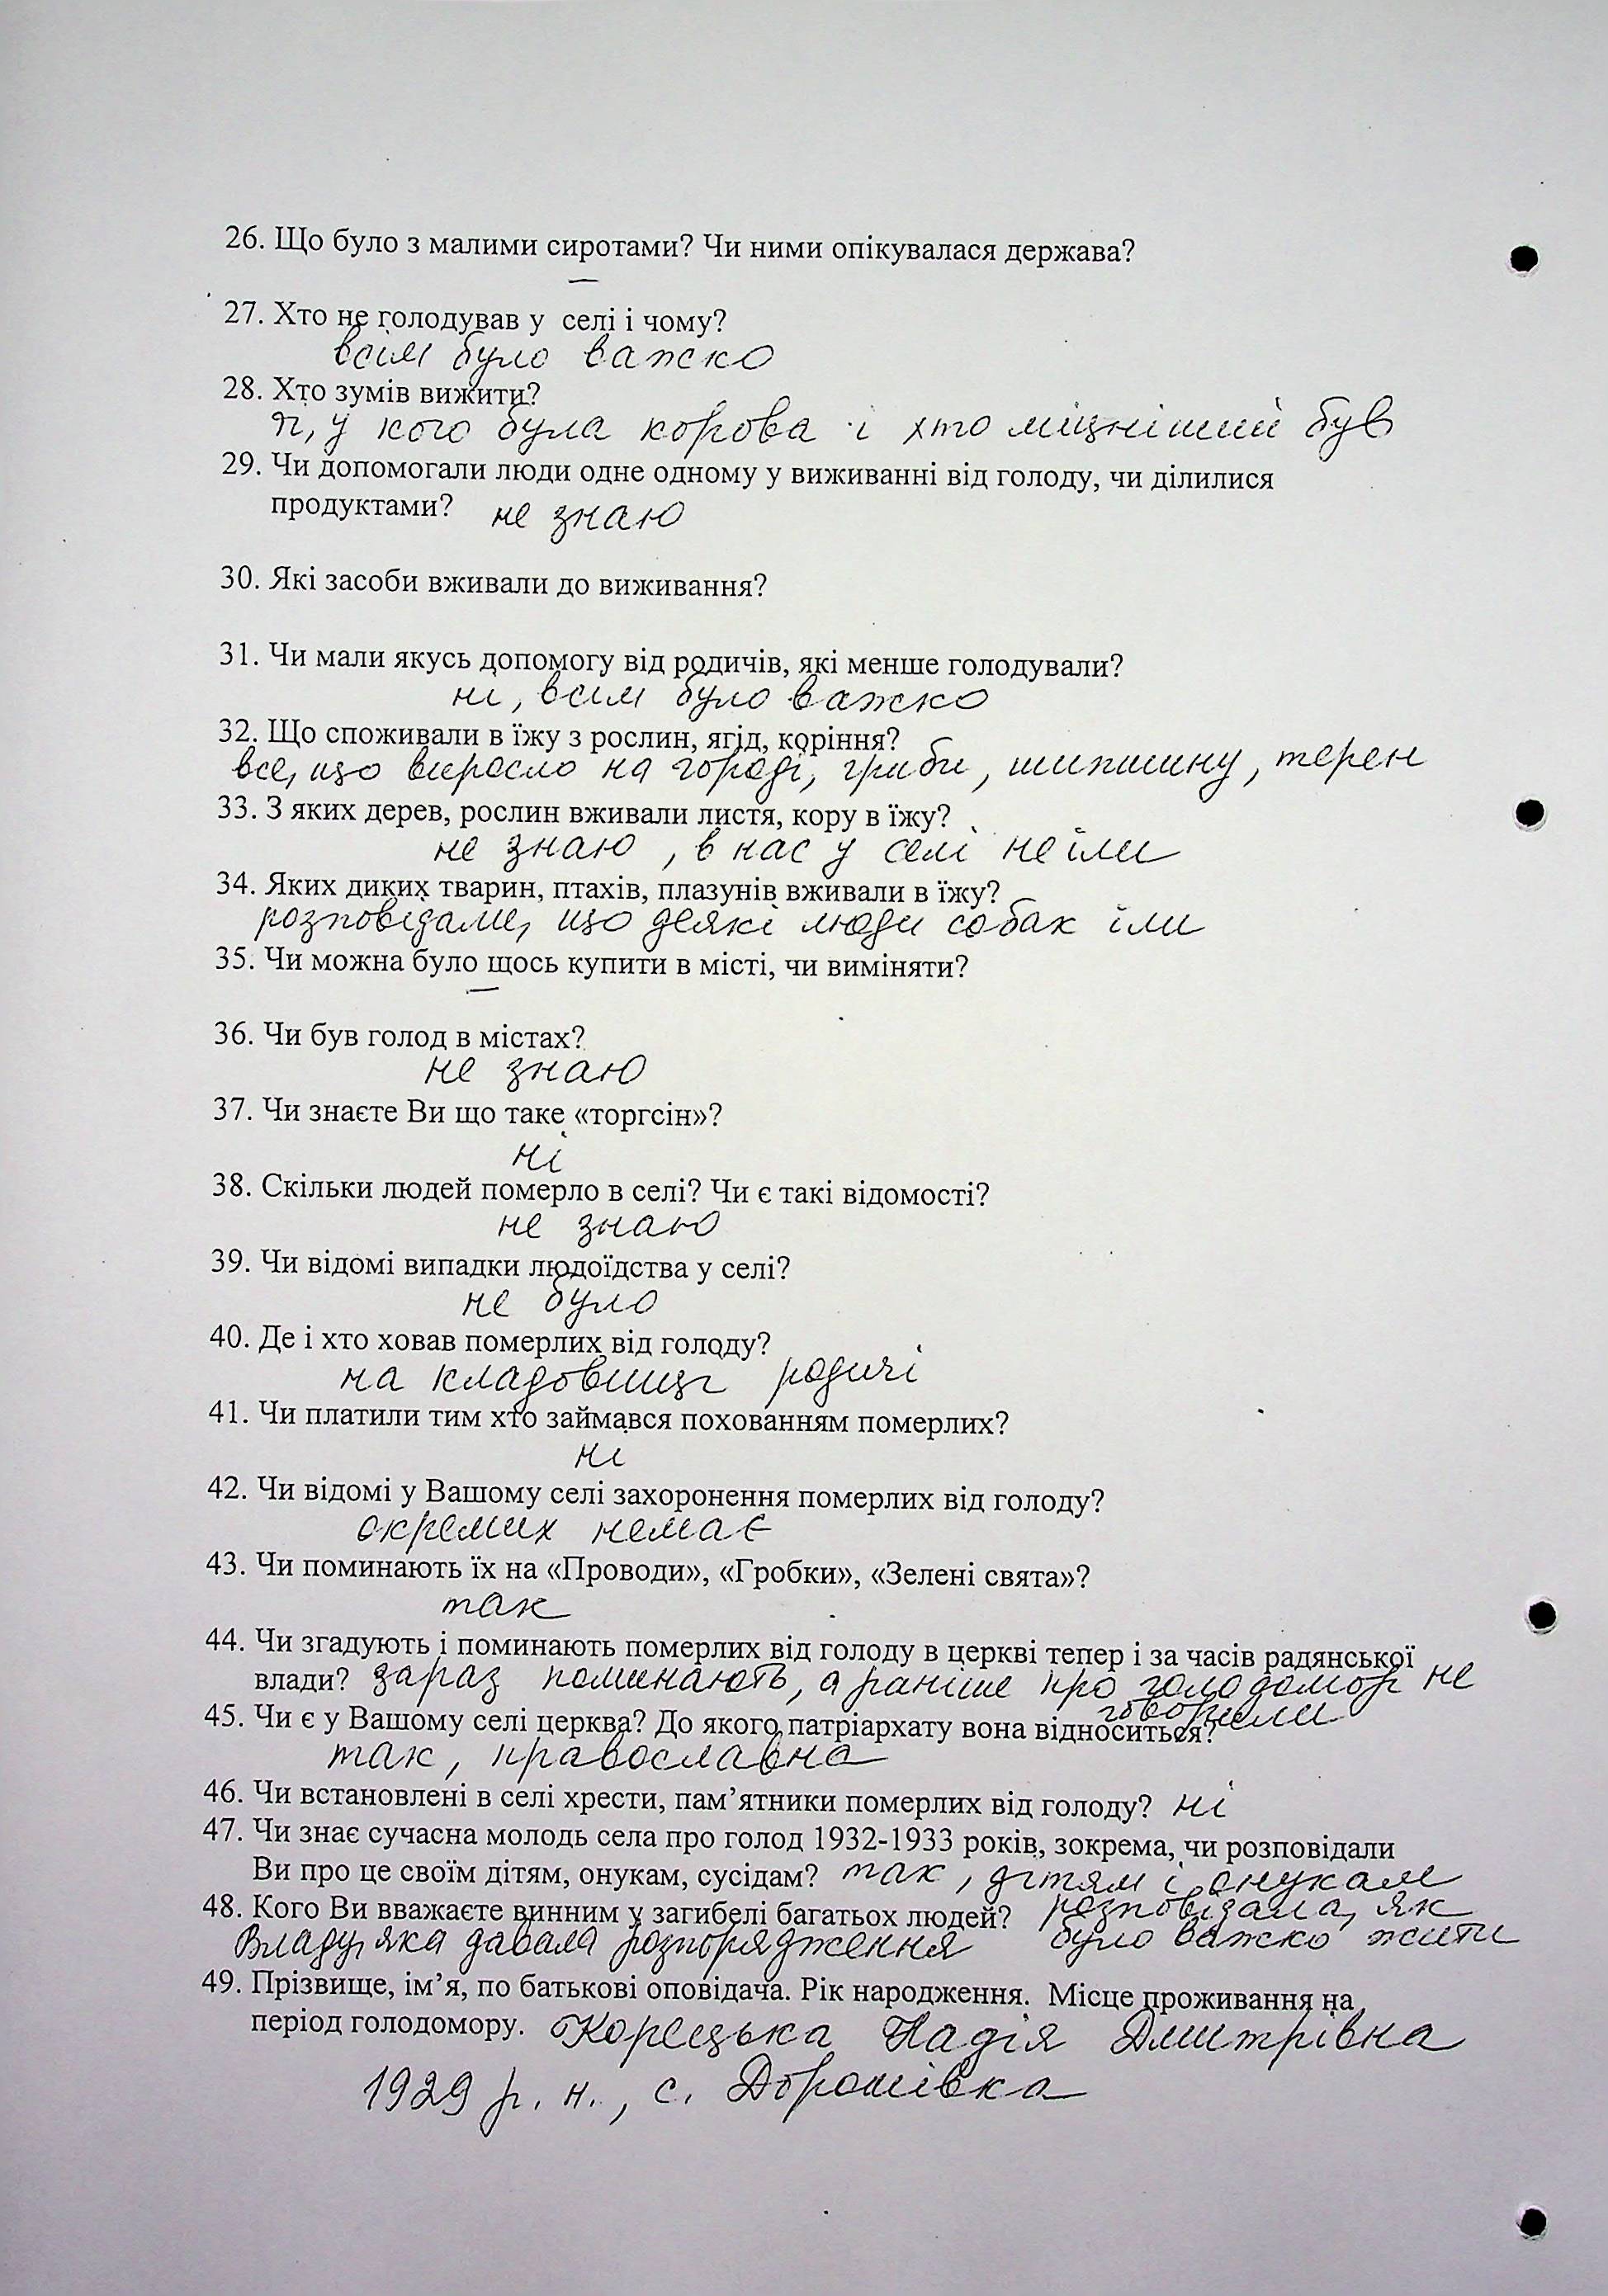 26. Що було з малими сиротами? Чи ними опікувалася держава?
—
27. Хто не голодував у селі і чому?
всім було важко
28. Хто зумів вижити?
ті, у кого була корова і хто міцніший був
29. Чи допомогали люди одне одному у виживанні від голоду, чи ділилися
продуктами? не знаю
30. Які засоби вживали до виживання?
31. Чи мали якусь допомогу від родичів, які менше голодували?
ні, всім було важко
32. Що споживали в їжу з рослин, ягід, коріння?
все, що виросло на городі, гриби, шипшину, терен
33. З яких дерев, рослин вживали листя, кору в їжу?
не знаю, в нас у селі не їли
34. Яких диких тварин, птахів, плазунів вживали в їжу?
розповідали, що деякі люди собак їли
35. Чи можна було щось купити в місті, чи виміняти?
—
36. Чи був голод в містах?
не знаю
37. Чи знаєте Ви що таке «торгсін»?
ні
38. Скільки людей померло в селі? Чи є такі відомості?
не знаю
39. Чи відомі випадки людоїдства у селі?
не було
40. Де і хто ховав померлих від голоду?
на кладовищі родичі
41. Чи платили тим хто займався похованням померлих?
ні
42. Чи відомі у Вашому селі захоронення померлих від голоду?
окремих немає
43. Чи поминають їх на «Проводи», «Гробки», «Зелені свята»?
так
44. Чи згадують і поминають померлих від голоду в церкві тепер і за часів радянської
влади? зараз поминають, а раніше про голодомор не
говорили
45. Чи є у Вашому селі церква? До якого патріархату вона відноситься?
так, православна
46. Чи встановлені в селі хрести, пам’ятники померлих від голоду? ні
47. Чи знає сучасна молодь села про голод 1932-1933 років, зокрема, чи розповідали
Ви про це своїм дітям, онукам, сусідам? так, дітям і онукам
розповідала, як
було важко жити
48. Кого Ви вважаєте винним у загибелі багатьох людей?
Владу, яка давала розпорядження
49. Прізвище, ім’я, по батькові оповідача. Рік народження. Місце проживання на
період голодомору. Корецька Надія Дмитрівна
1929 р. н., с. Дорошівка